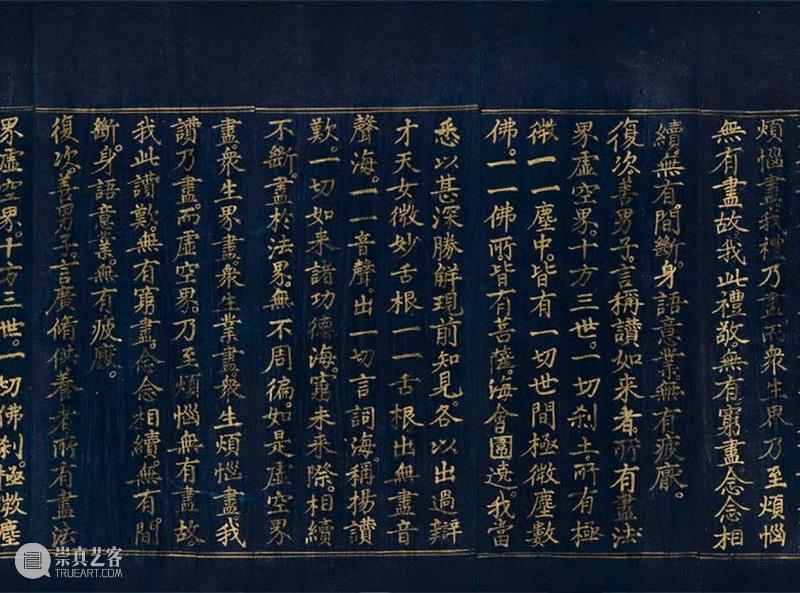 煩惱盡。我禮乃盡而衆生界乃至煩惱
無有盡故。我此禮敬。無有窮盡念念相
續無有間斷。身語意業無有疲厭。
復次善男子。言稱讚如來者。所有盡法
界虛空界。十方三世。一切刹土所有極
微一一塵中。皆有一切世間極微塵數
佛。一一佛所皆有菩薩。海會圍遶。我當
悉以甚深勝解現前知見。各以出過辯
才天女微妙舌根一一舌根出無盡音
聲海。一一音聲。出一切言詞海。稱揚讚
歎。一切如來諸功德海。窮未來際。相續
不斷。盡於法界。無不周徧如是虛空界
盡。衆生界盡衆生業盡衆生煩惱盡我
讚乃盡。而虛空界。乃至煩惱無有盡故。
我此讚歎。無有窮盡。念念相續。無有間
斷。身語意業。無有疲厭。
復次。善男子。言廣脩供養者所有盡法
界虛空界。十方三世。一切佛刹。極微塵
崇真艺客
TRUEART.COM